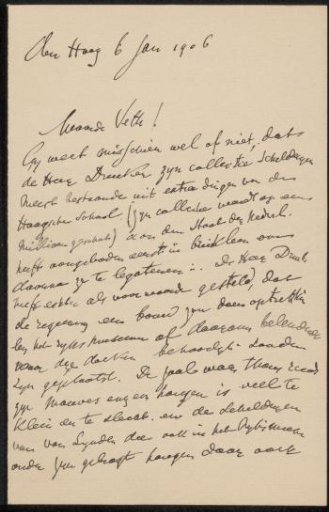 Den Haag 6 Jan 1906
Waarde Veth!
Gij weet misschien wel of niet, dat
de Heer Drucker zijn collectie schilderijen
meest bestaande uit extra dingen van de
Haagsche School (zijn collectie wordt op een
millioen geschat) aan den Staat der Nederl.
heeft aangeboden eerst in bruikleen om
daarna ze te legateeren. De Heer Druck
heeft echter als voorwaarde gesteld, dat
de regeering een bouw zou doen optrekken
bij het Rijksmuseum of daaraan belendende
waar die doeken behoorlijk konden
zijn geplaatst. De zaal waar thans
zijn Mauves en en hangen is veel te
klein en te slecht. en de schilderijen
van van Lynden die ook in het Rijksmuseum
onder zijn gebragt hangen daar ook